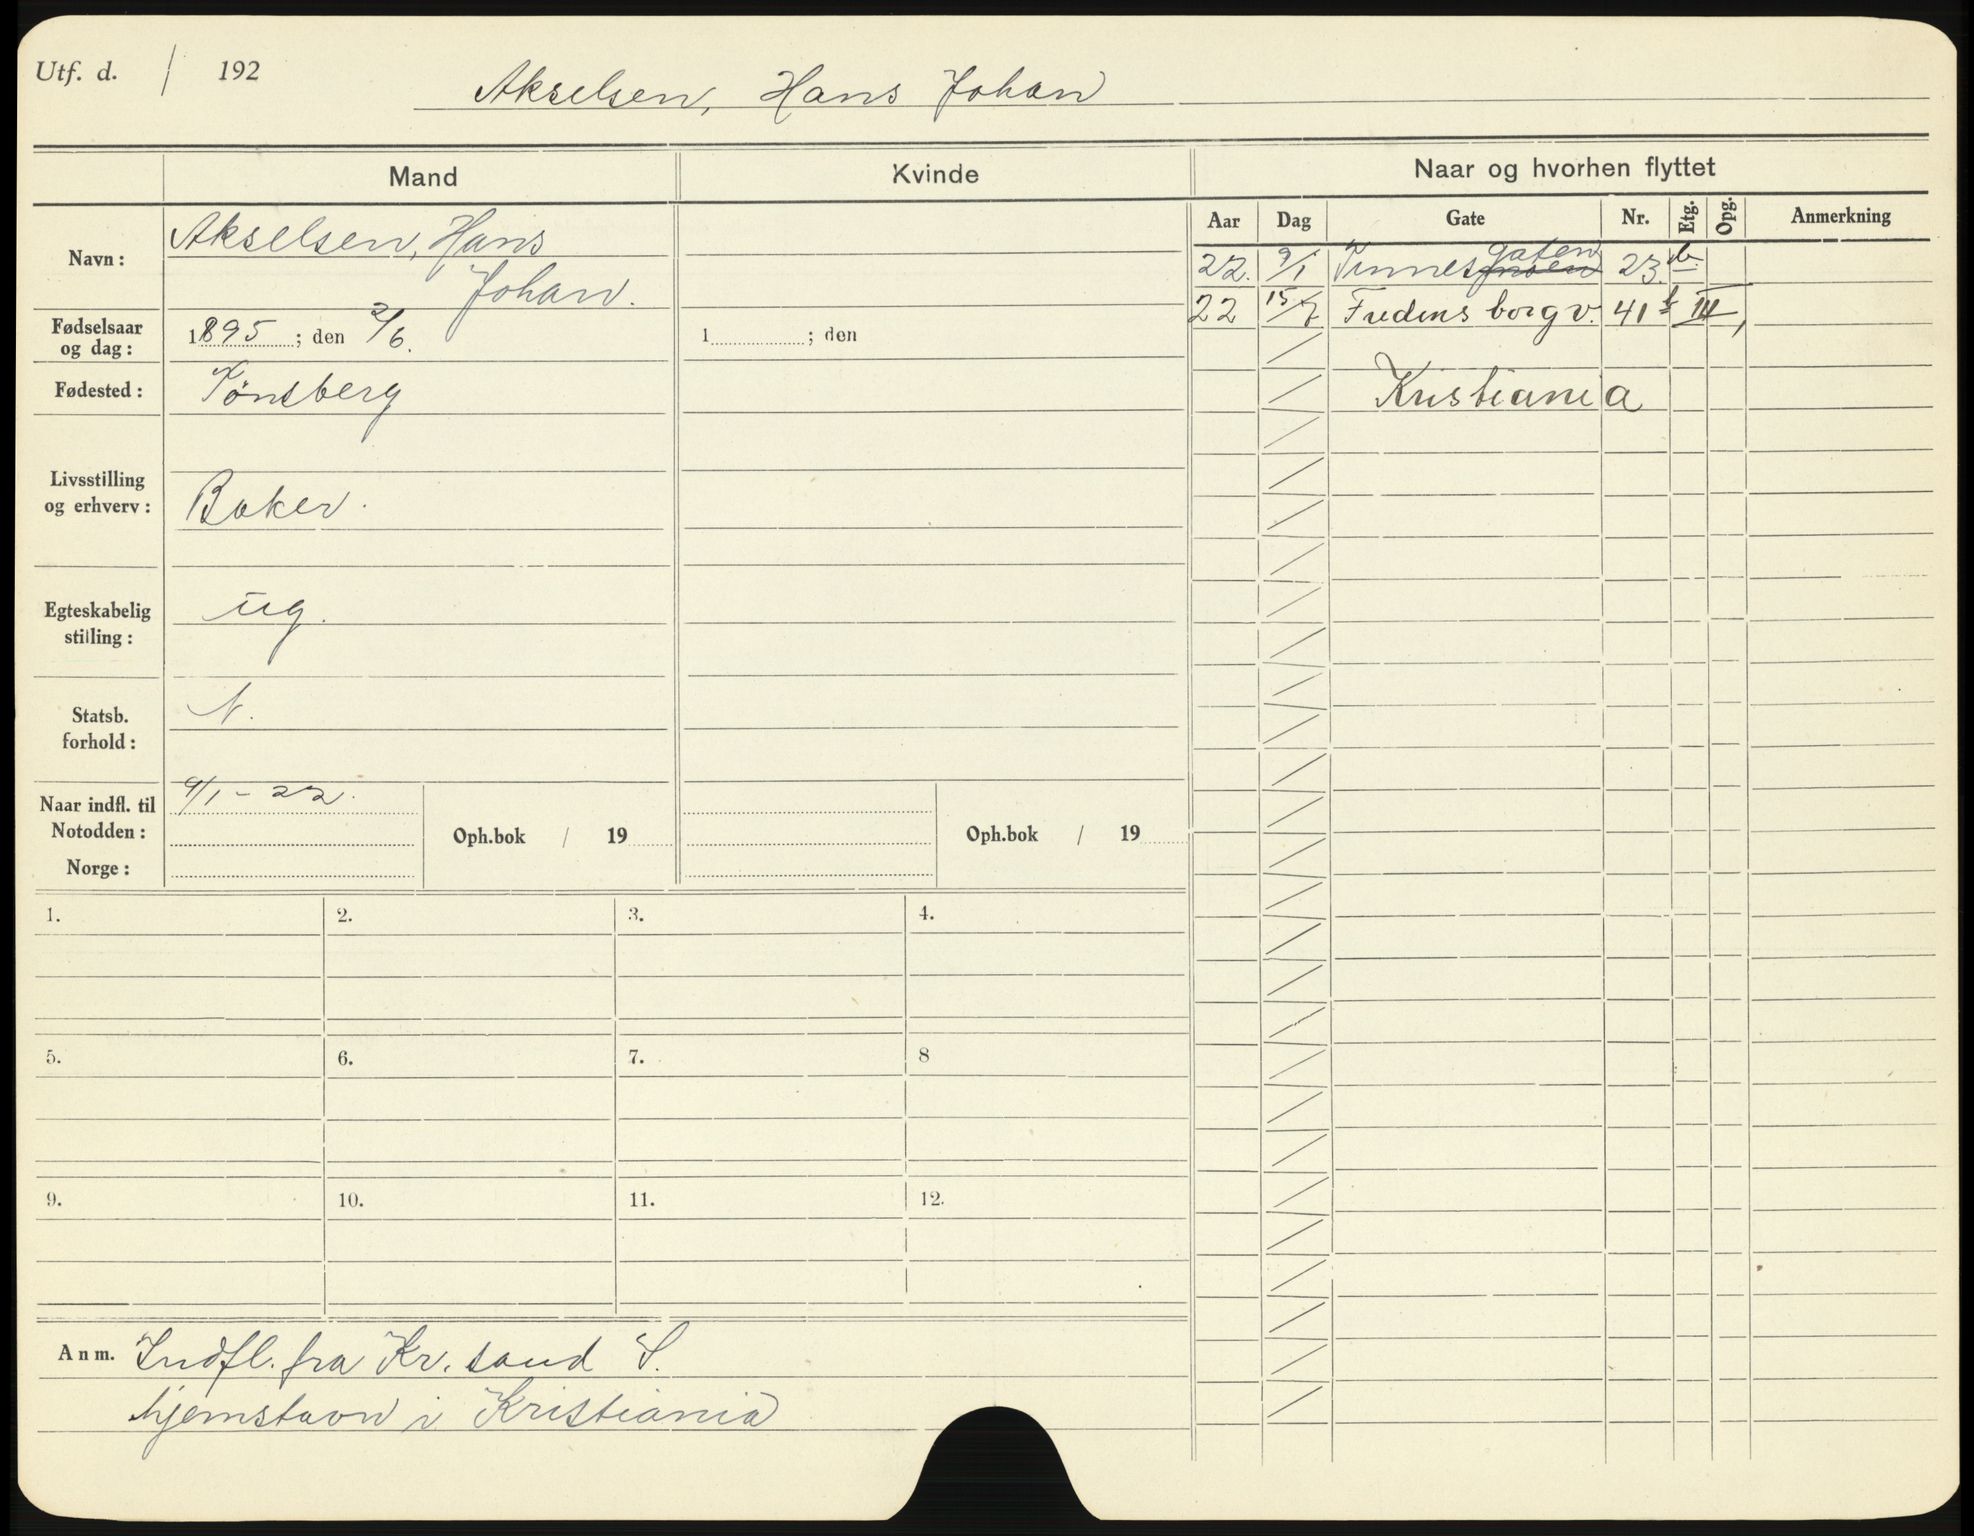 Utf. d. / 192
Akselsen, Hans Johan
Mand
Kvinde
Naar og hvorhen flyttet
Aar Dag Gate Nr. Etg. Opg. Anmerkning
Navn:
Akselsen, Hans
Johan.
Fødselsaar
og dag:
1895 ; den 2/6.
1 ; den
Fødested:
Tönsberg
Livsstilling
og erhverv:
Baker.
Egteskabelig
stilling:
ug.
Statsb.
forhold:
N.
Naar indfl. til
Notodden:
Norge:
9/1 - 22.
Oph.bok / 19
Oph.bok / 19
gaten
22. 9/1 Tinnes 23. b.
22 15/7 Fredensborgv. 41 III
Kristiania
1. 2. 3. 4.
5. 6. 7. 8
9. 10. 11. 12.
Anm. Indfl. fra Kr. sand S.
hjemstavn i Kristiania